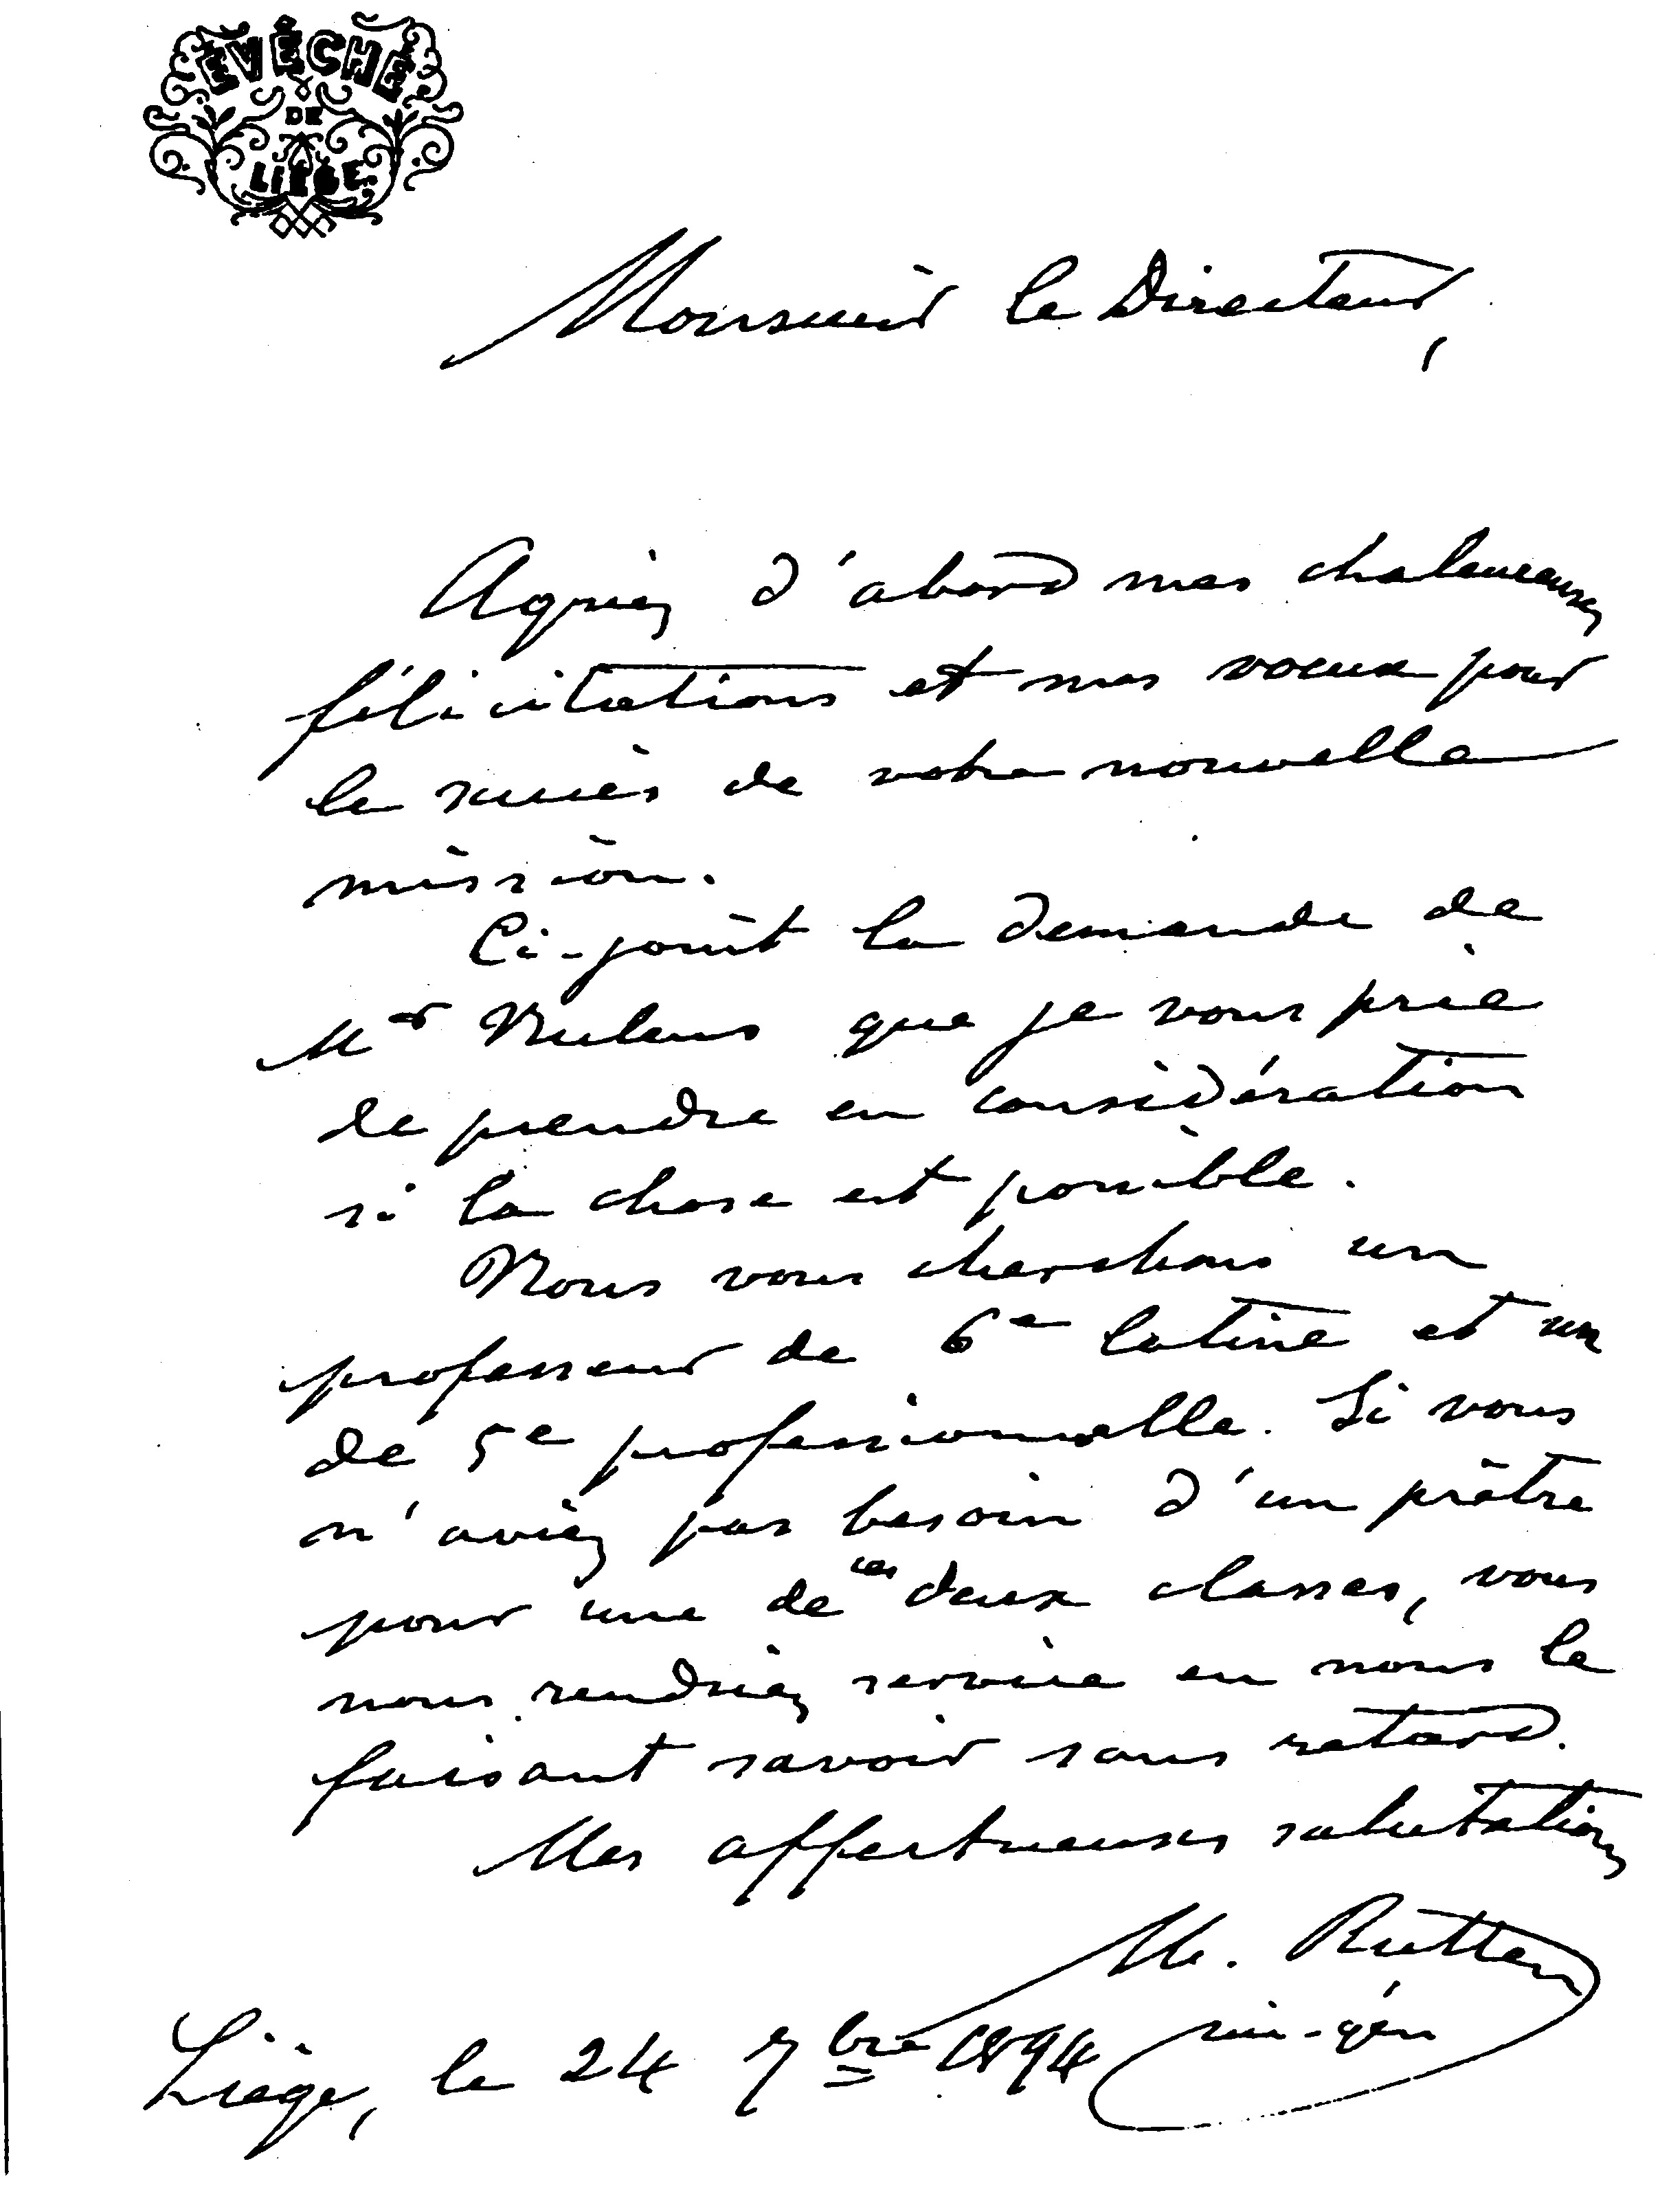 ÉVÊCHÉ
DE
LIÈGE
Monsieur le Directeur,
Agréez d'abord mes chaleureuses
félicitations et mes voeux pour
le succès de votre nouvelle
mission.
Ci-joint la demande de
Mr Nulens que je vous prie
de prendre en considération
si la chose est possible.
Nous vous cherchons un
professeur de 6e latine et un
de 5e professionnelle. Si vous
n'aviez pas besoin d'un prêtre
pour une de ces deux classes, vous
nous rendriez service en nous le
faisant savoir sans retard.
Mes affectueuses salutations
M. Rutten
vic-gén
Liège, le 24 7bre 1894